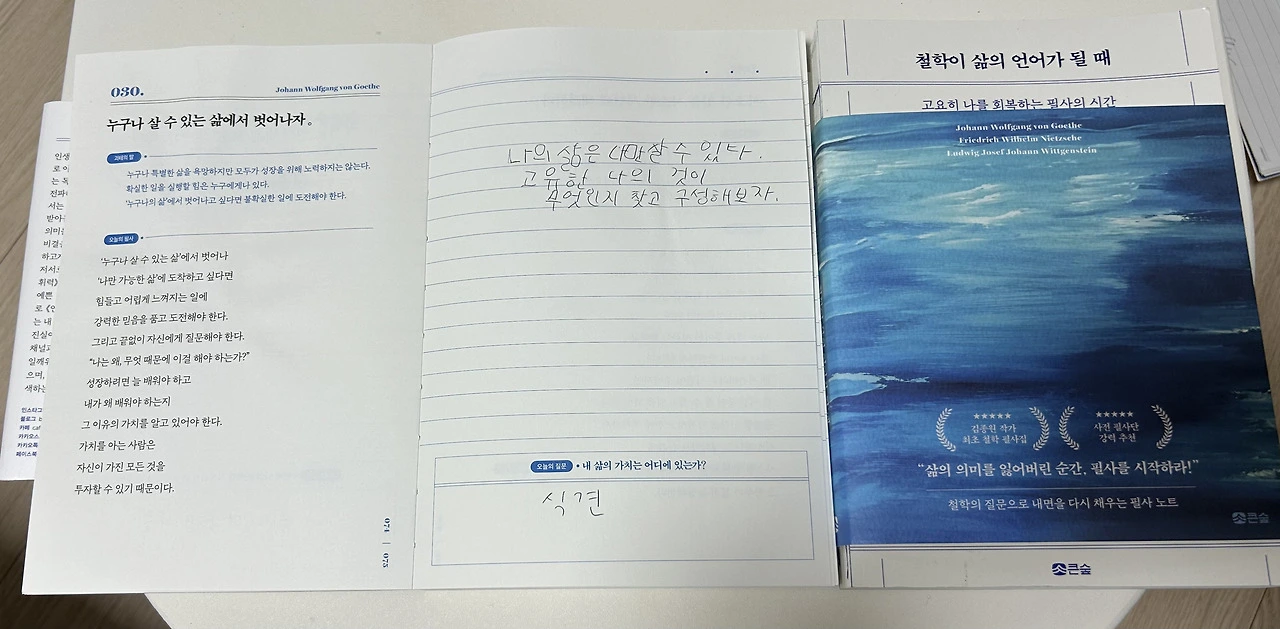 인생
로 이
는 목
전파
서는
받아
의미
비결
하고
저서
휘력》
예쁜
로 《언
는 내
진실
채널
일깨우
으며,
색하는
인스타그
블로그 b
카페 caf
카카오스
카카오톡
페이스북
030.
Johann Wolfgang von Goethe
누구나 살 수 있는 삶에서 벗어나자。
괴테의 말
누구나 특별한 삶을 욕망하지만 모두가 성장을 위해 노력하지는 않는다.
확실한 일을 실행할 힘은 누구에게나 있다.
‘누구나의 삶’에서 벗어나고 싶다면 불확실한 일에 도전해야 한다.
오늘의 필사
‘누구나 살 수 있는 삶’에서 벗어나
‘나만 가능한 삶’에 도착하고 싶다면
힘들고 어렵게 느껴지는 일에
강력한 믿음을 품고 도전해야 한다.
그리고 끝없이 자신에게 질문해야 한다.
“나는 왜, 무엇 때문에 이걸 해야 하는가?”
성장하려면 늘 배워야 하고
내가 왜 배워야 하는지
그 이유의 가치를 알고 있어야 한다.
가치를 아는 사람은
자신이 가진 모든 것을
투자할 수 있기 때문이다.
074 | 075
나의 삶은 나만 살 수 있다.
고유한 나의 것이
무엇인지 찾고 구성해보자.
오늘의 질문 • 내 삶의 가치는 어디에 있는가?
식견
철학이 삶의 언어가 될 때
고요히 나를 회복하는 필사의 시간
Johann Wolfgang von Goethe
Friedrich Wilhelm Nietzsche
Ludwig Josef Johann Wittgenstein
★★★★★
김종원 작가
최초 철학 필사집
★★★★★
사전 필사단
강력 추천
“삶의 의미를 잃어버린 순간, 필사를 시작하라!”
철학의 질문으로 내면을 다시 채우는 필사 노트
큰숲
큰숲